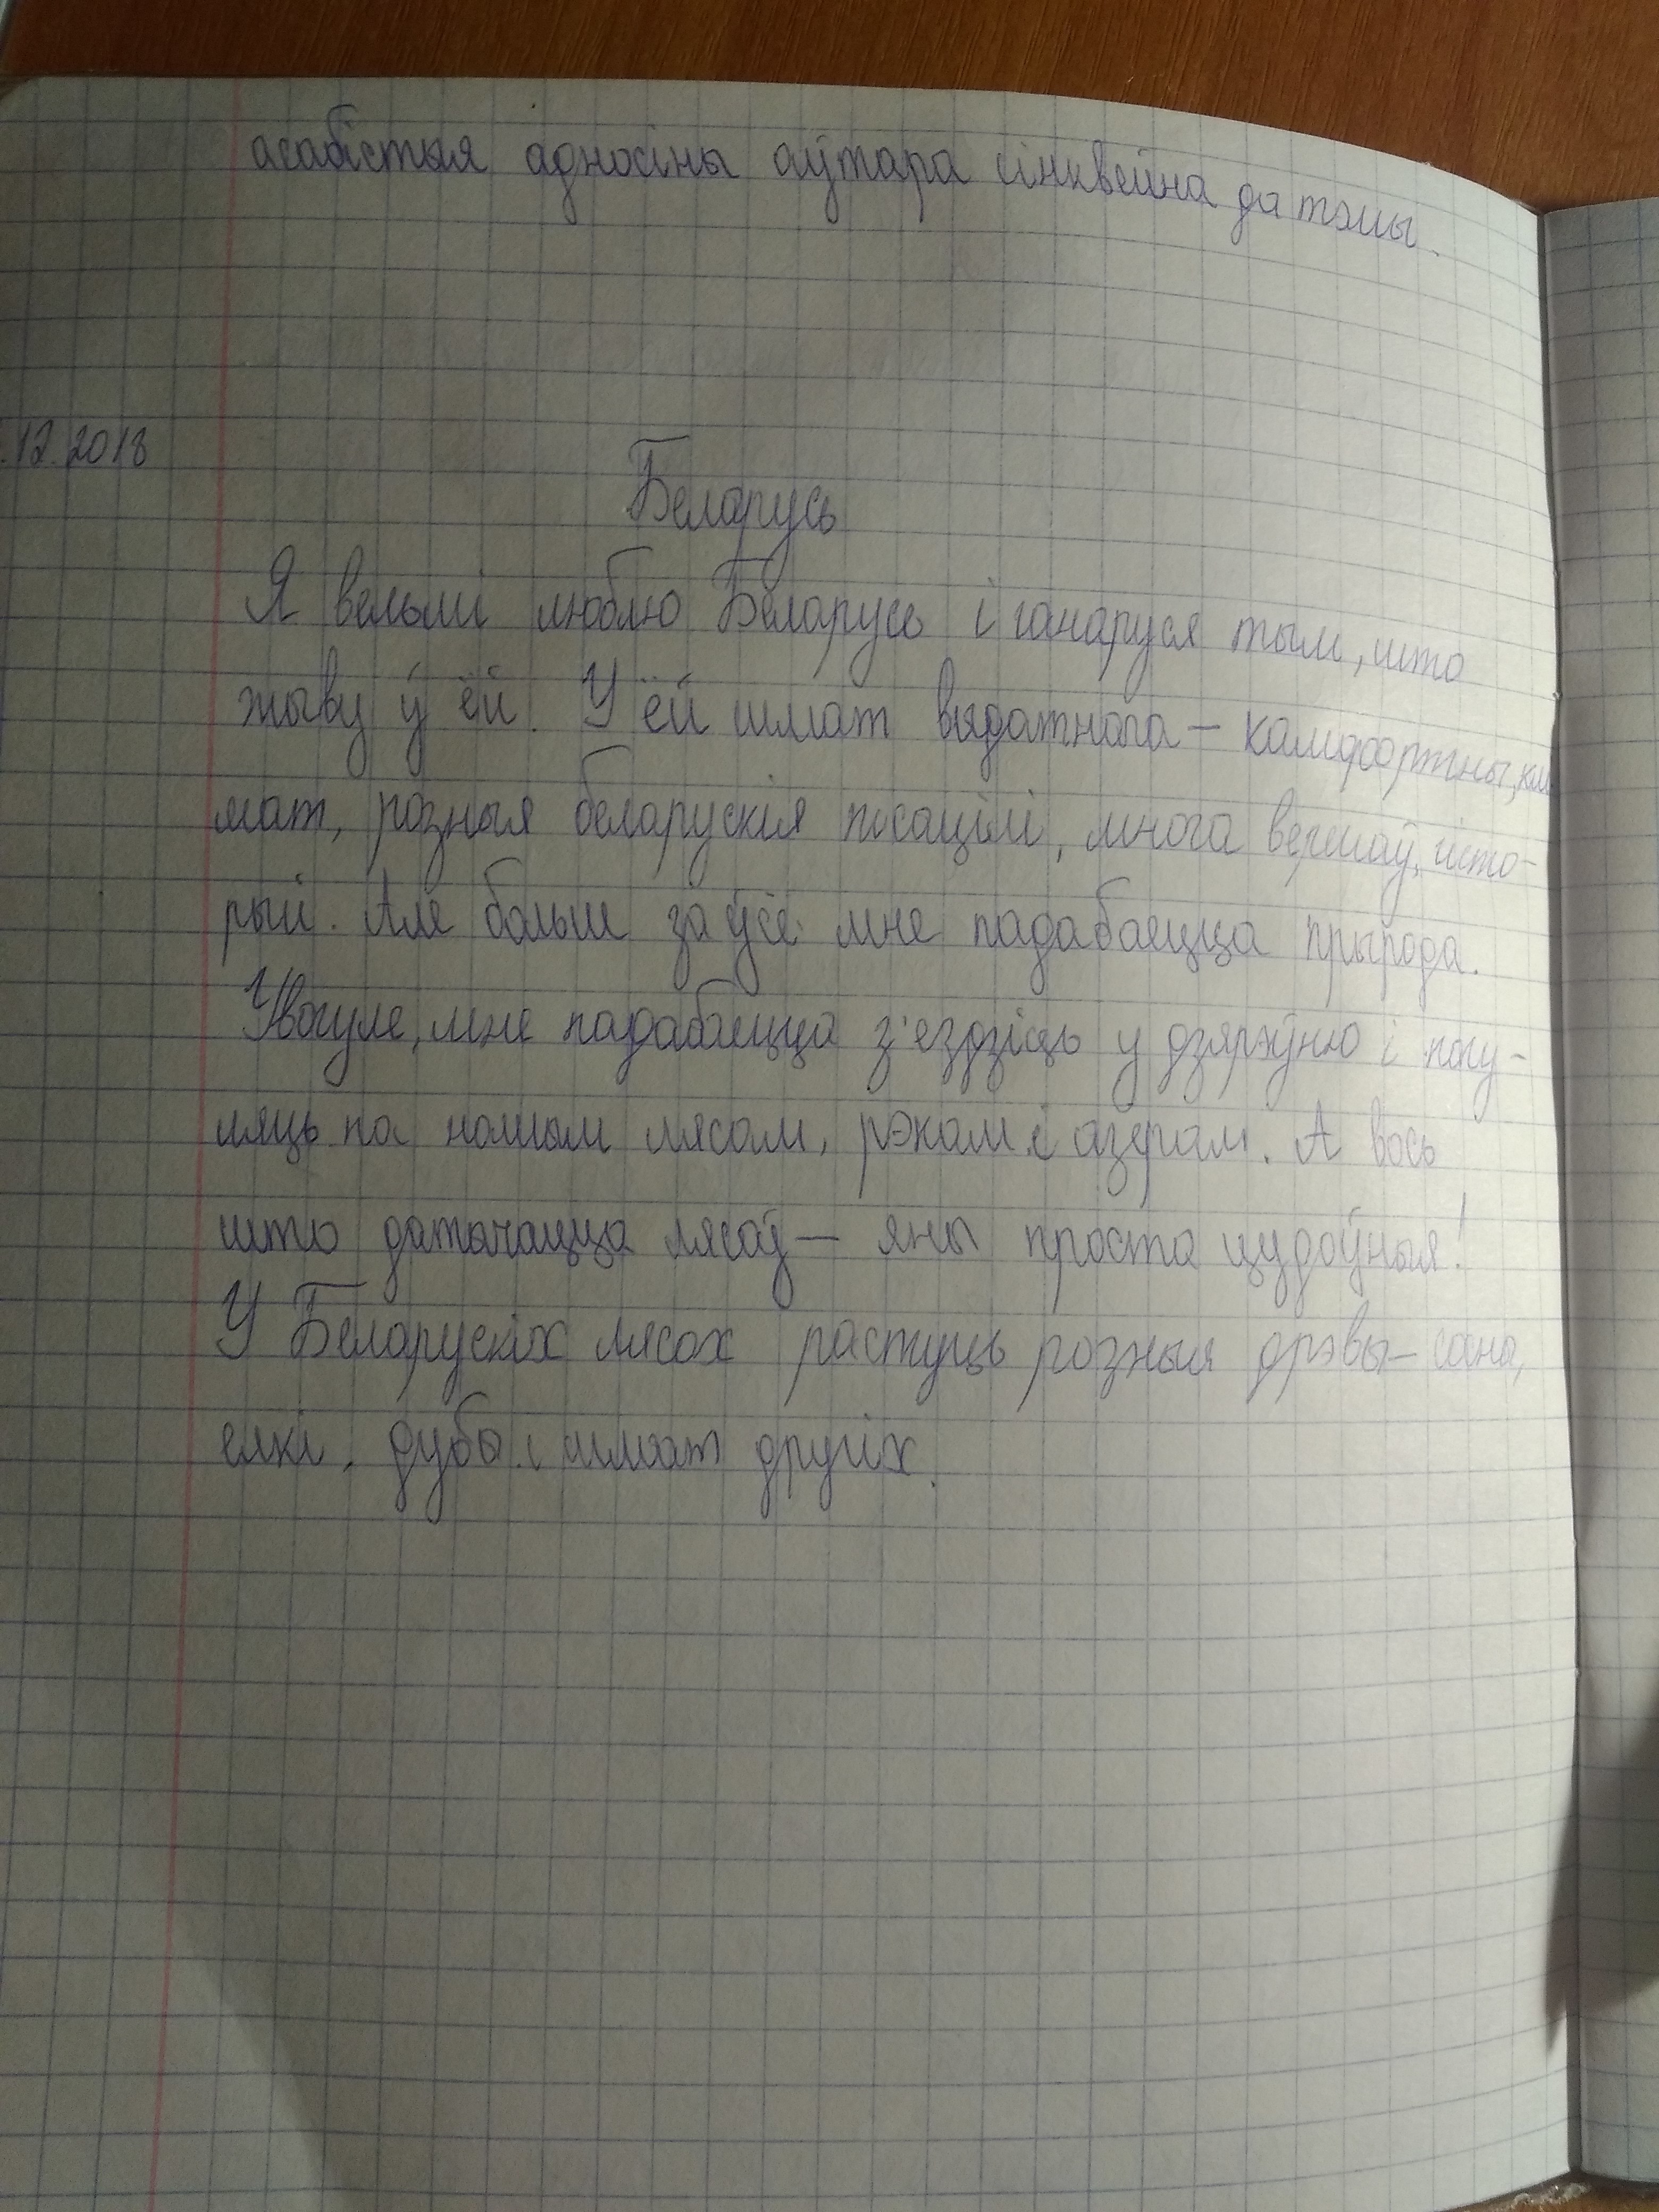 асабістыя адносіны аўтара сінквейна да тэмы.
.12.2018
Беларусь
Я вельмі люблю Беларусь і ганаруся тым, што
жыву ў ёй. У ёй шмат выдатнага – камфортны, клі
мат, розныя беларускія пісацілі, многа вершаў, гісто-
рый. Але больш за ўсё мне падабаецца прырода.
Увогуле, мне падабаецца з'ездзіць у дзярэўню і пагу-
ляць па нашым лясам, рэкам і азёрам. А вось
што датычацца лясоў – яны проста цудоўныя!
У Беларускіх лясах растуць розныя дрэвы – сосна,
елкі, дубы і шмат другіх.